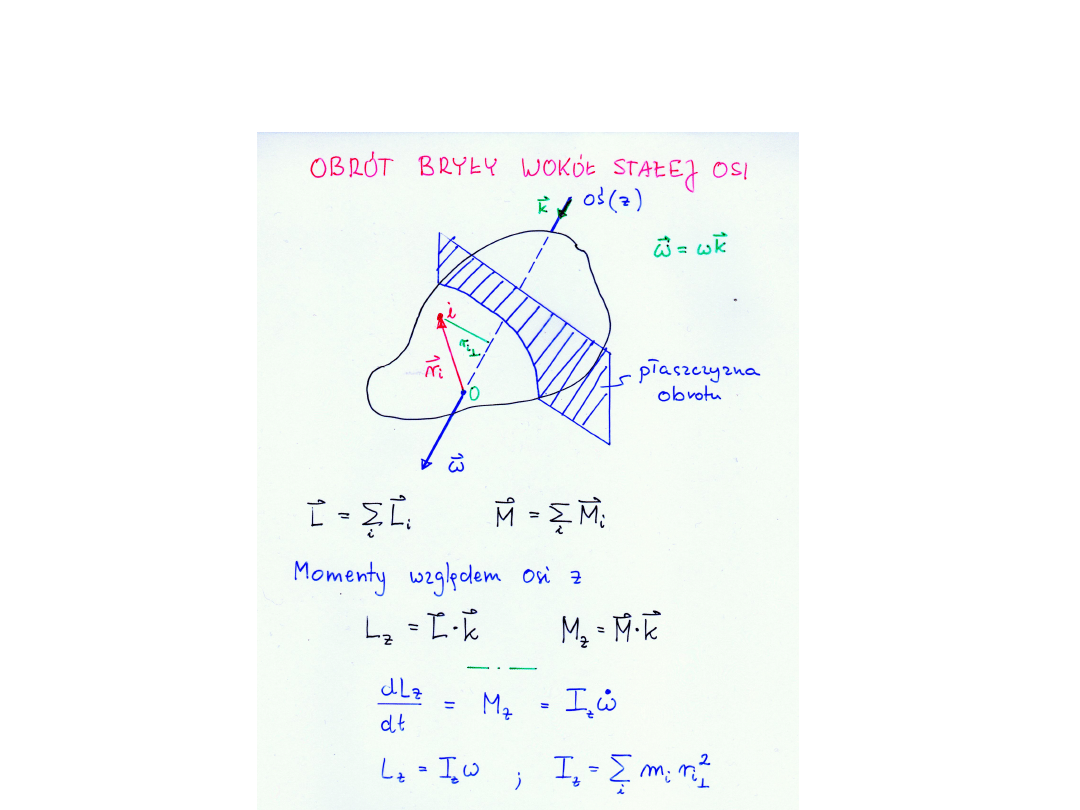 OBRÓT BRYŁY WOKÓŁ STAŁEJ OSI
k⃗ oś(z)
ω⃗ = ωk⃗
i
r⃗ᵢ rᵢ⊥
płaszczyzna
obrotu
O
ω⃗
L⃗ = Σᵢ L⃗ᵢ M⃗ = Σᵢ M⃗ᵢ
Momenty względem osi z
L_z = L⃗·k⃗ M_z = M⃗·k⃗
dL_z/dt = M_z = I_z ω̇
L_z = I_z ω ; I_z = Σᵢ mᵢ rᵢ⊥²